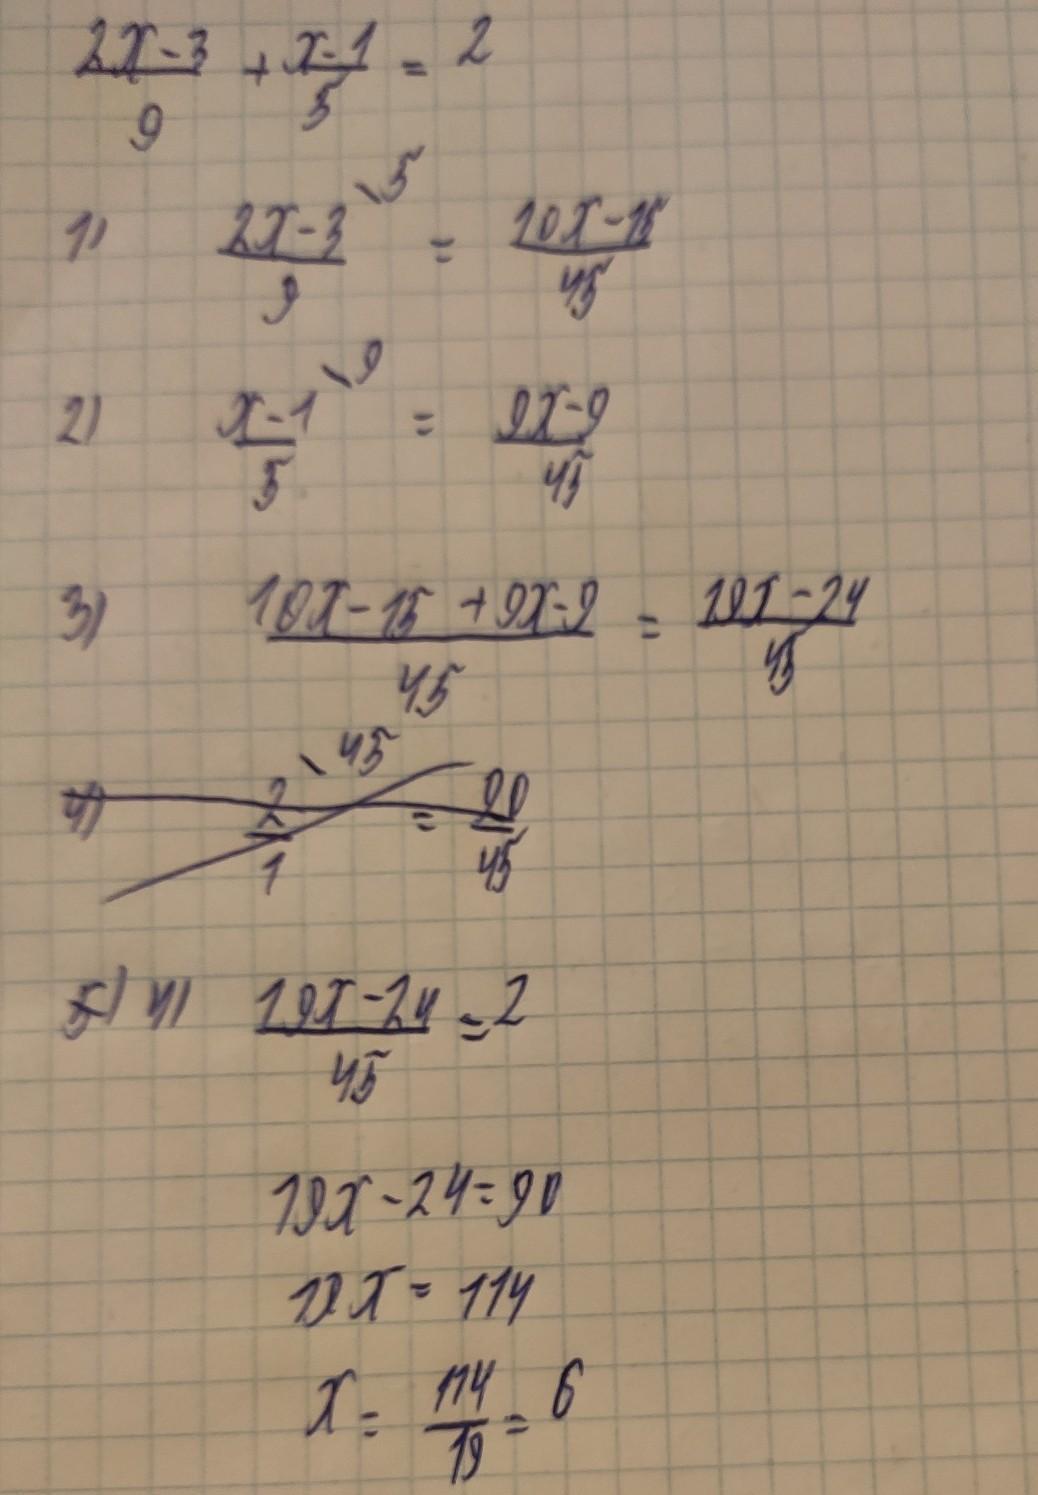 (2x-3)/9 + (x-1)/5 = 2
1) (2x-3)/9 \5 = (10x-15)/45
2) (x-1)/5 \9 = (9x-9)/45
3) (10x-15+9x-9)/45 = (19x-24)/45
4) 2/1 \45 = 90/45
5) 4) (19x-24)/45 = 2
19x-24=90
19x=114
x = 114/19 = 6